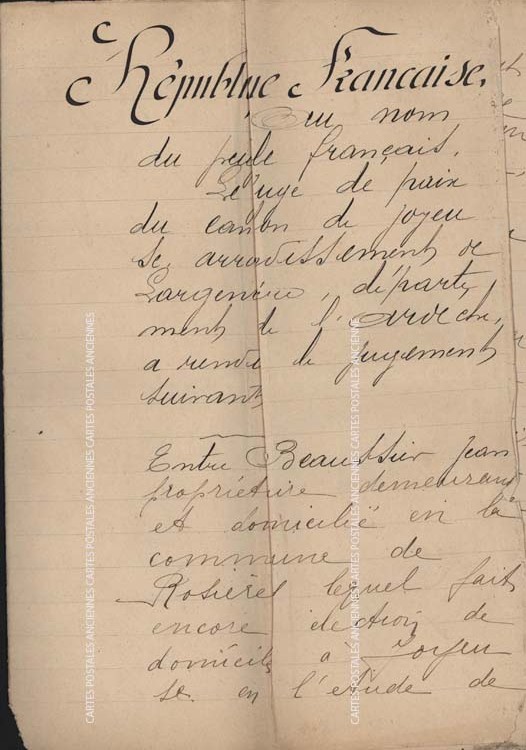 République Française,
Au nom
du peule français.
Le juge de paix
du canton de joyeu
se, arrondissement de
Largentière, départe,
ment de l'ardèche,
a rendu le jugement
suivant
Entre Beaussier Jean
propriétaire demeurant
et domicilié en la
commune de
Rosières lequel fait
encore élection de
domicile a Joyeu
se en l'étude de
CARTES POSTALES ANCIENNES CARTES POSTALES ANCIENNES CARTES POSTALES ANCIENNES
CARTES POSTALES ANCIENNES CARTES POSTALES ANCIENNES CARTES POSTALES ANCIENNES